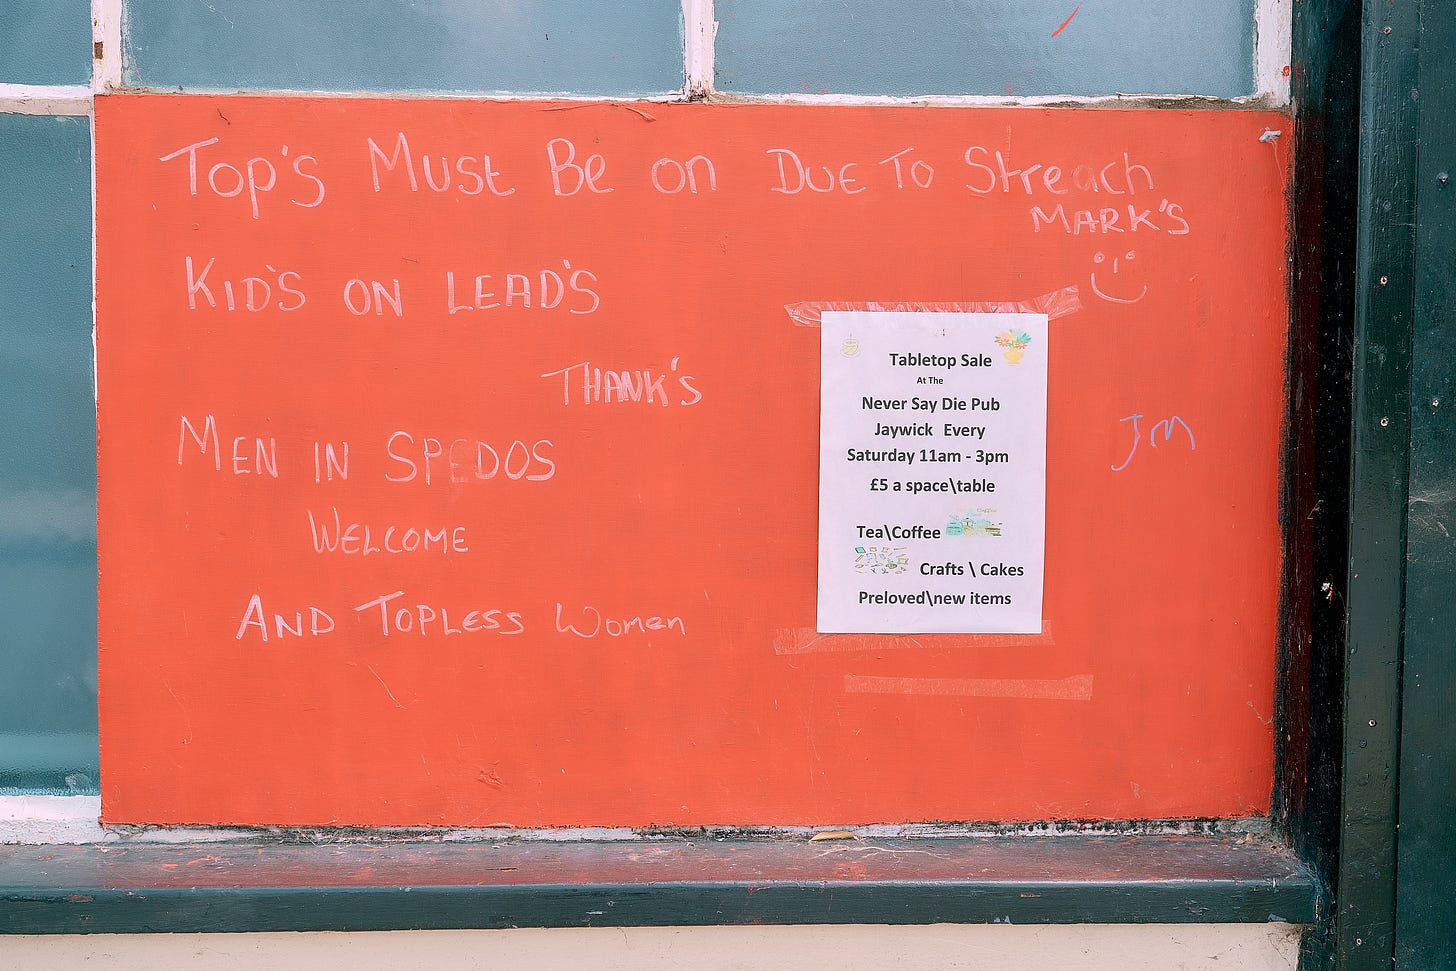 Top's Must Be on Due To Streach
MARK'S
KID'S ON LEAD'S
THANK'S
MEN IN SPEDOS
WELCOME
AND TOPLESS Women
Tabletop Sale
At The
Never Say Die Pub
Jaywick Every
Saturday 11am - 3pm
£5 a space\table
Tea\Coffee
Crafts \ Cakes
Preloved\new items
JM